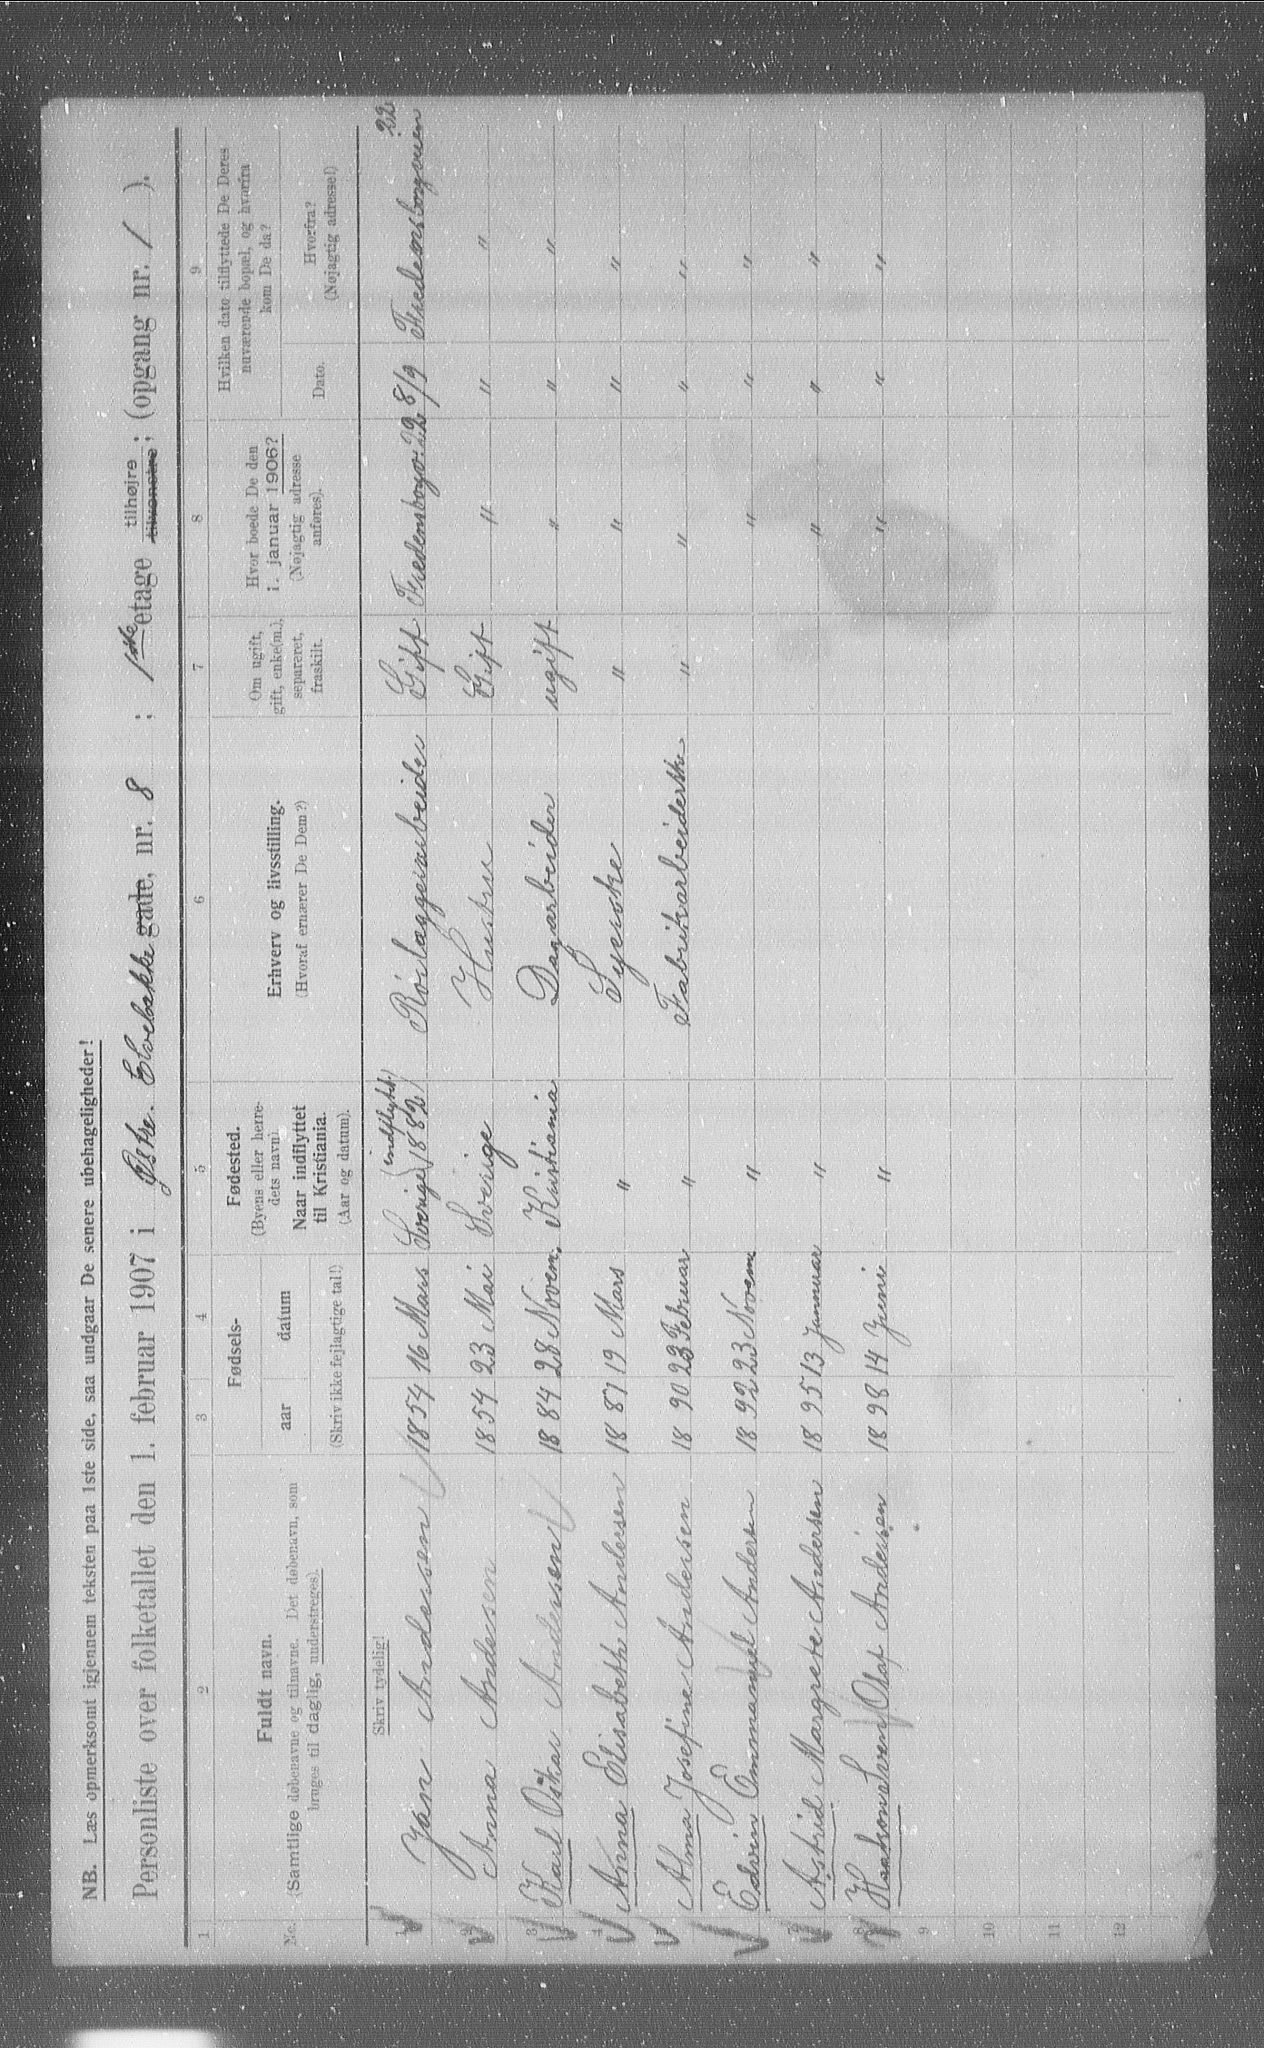 NB. Læs opmerksomt igjennem teksten paa 1ste side, saa undgaar De senere ubehageligheder!
Personliste over folketallet den 1. februar 1907 i Østre. Elvebakke gade, nr. 8 ; 1ste etage tilhøjre tilvenstre; (opgang nr. 1 ).
1 2 3 4 5 6 7 8 9
No. Fuldt navn.
(Samtlige døbenavne og tilnavne. Det døbenavn, som
bruges til daglig, understreges).
Fødsels-
aar datum
(Skriv ikke fejlagtige tal!)
Fødested.
(Byens eller herre-
dets navn).
Naar indflyttet
til Kristiania.
(Aar og datum).
Erhverv og livsstilling.
(Hvoraf ernærer De Dem?)
Om ugift,
gift, enke(m.),
separeret,
fraskilt.
Hvor boede De den
1. januar 1906?
(Nøjagtig adresse
anføres).
Hvilken dato tilflyttede De Deres
nuværende bopæl, og hvorfra
kom De da?
Dato.
Hvorfra?
(Nøjagtig adresse!)
Skriv tydelig!
1 Jan Andersen 1854 16 Mars Sverige (indflyt. 1882) Rörlæggeiarbeider Gift Fredensborgv. 22 8/9 Fredensborgveien 22
2 Anna Andersen 1854 23 Mai Sverige Hustru Gift " " "
3 Karl Oskar Andersen 1884 28 Novem. Kristiania Dagarbeider ugift " " "
4 Anna Elisabeth Andersen 1887 19 Mars " Syerske " " " "
5 Alma Josefine Andersen 1890 23 Februar " Fabrikarbeiderske " " " "
Edvin Emmanuel Andersen 1892 23 Novem. " " " "
7 Astrid Margrete Andersen 1895 13 Januar " " " "
8 Haakon Sven Olaf Andersen 1898 14 Juni " " " "
9
10
11
12